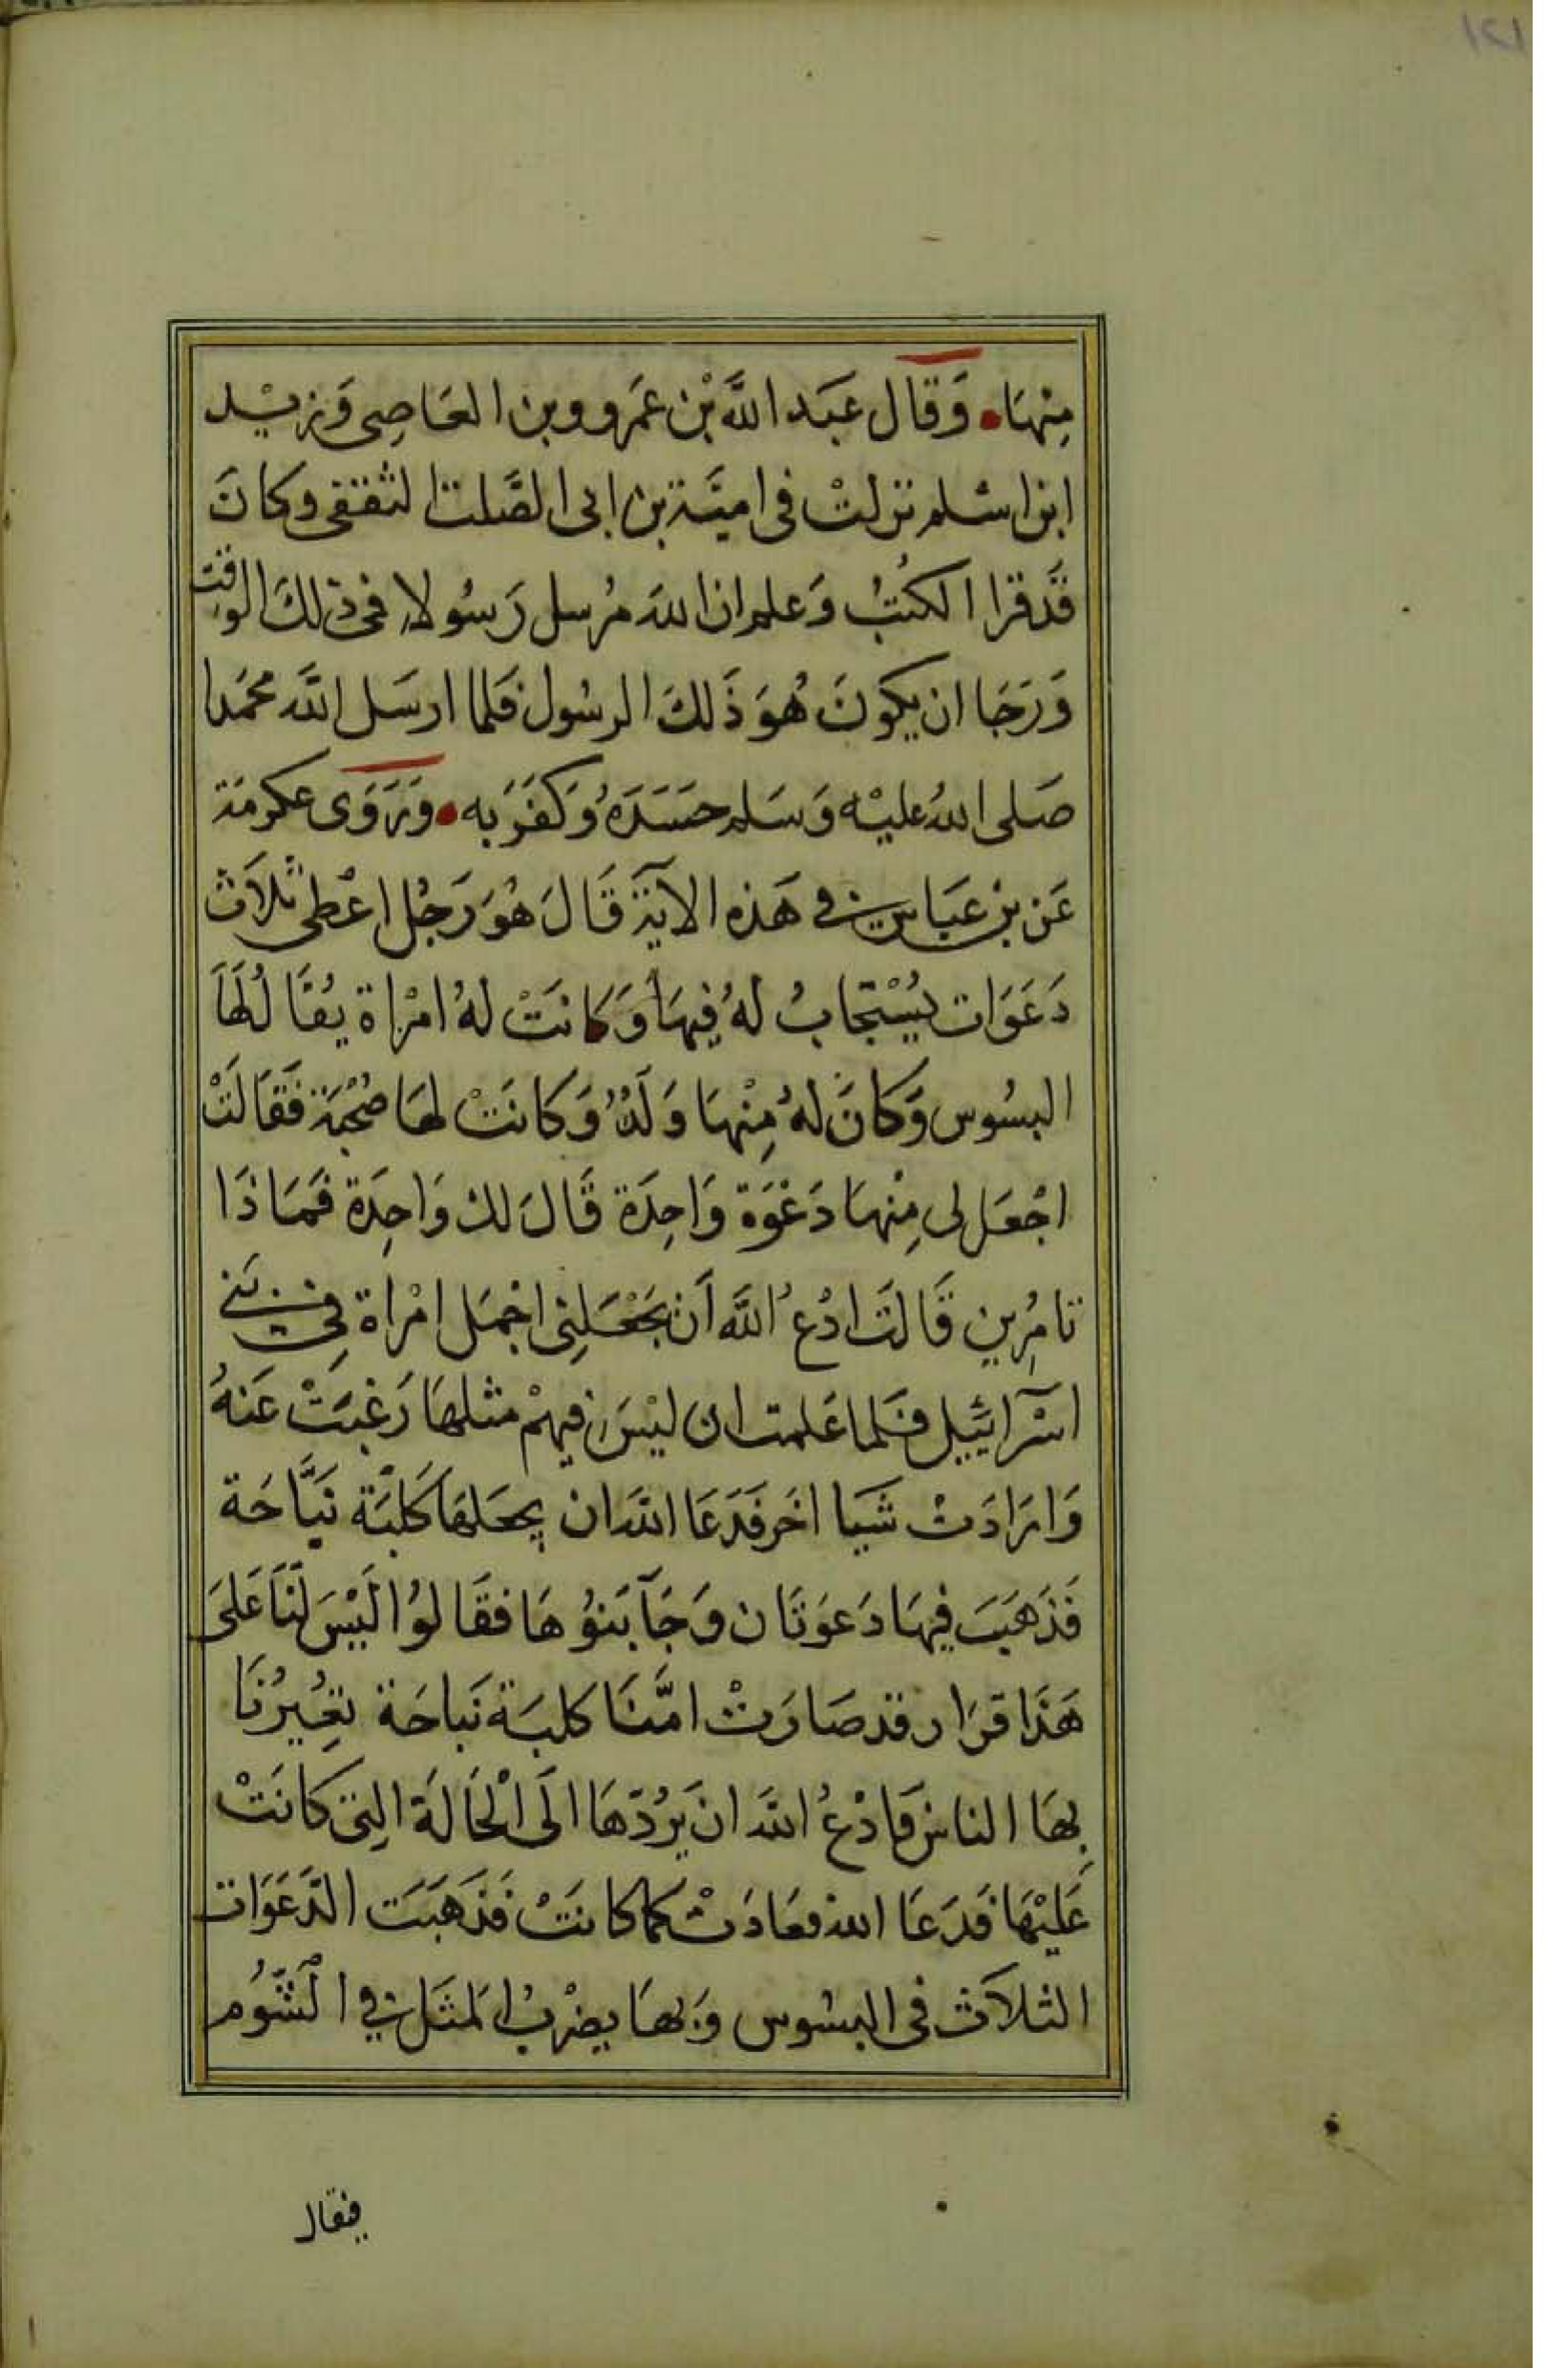 منها • وقال عبد الله بن عمرو وبن العاصى وزيد
ابن اسلم نزلت فى امية بن ابى الصلت الثقفى وكان
قد قرا الكتب وعلم ان الله مرسل رسولا فى ذلك الوقت
ورجا ان يكون هو ذلك الرسول فلما ارسل الله محمدا
صلى الله عليه وسلم حسده وكفر به • وروى عكرمة
عن بن عباس فى هذه الآية قال هو رجل اعطى ثلاث
دعوات يستجاب له فيها وكانت له امراة يقال لها
البسوس وكان له منها ولد وكانت لها صحبة فقالت
اجعل لى منها دعوة واحدة قال لك واحدة فماذا
تامرين قالت ادع الله ان يجعلنى اجمل امراة فى بنى
اسرآئيل فلما علمت ان ليس فيهم مثلها رغبت عنه
وارادت شيا اخر فدعا الله ان يجعلها كلبة نباحة
فذهبت فيها دعوتان وجآ بنوها فقالوا ليس لنا على
هذا قرار قد صارت امنا كلبة نباحة تعيرنا
بها الناس فادع الله ان يردها الى الحالة التى كانت
عليها فدعا الله فعادت كما كانت فذهبت الدعوات
الثلاث فى البسوس وبها يضرب المثل فى الشوم
فيقال